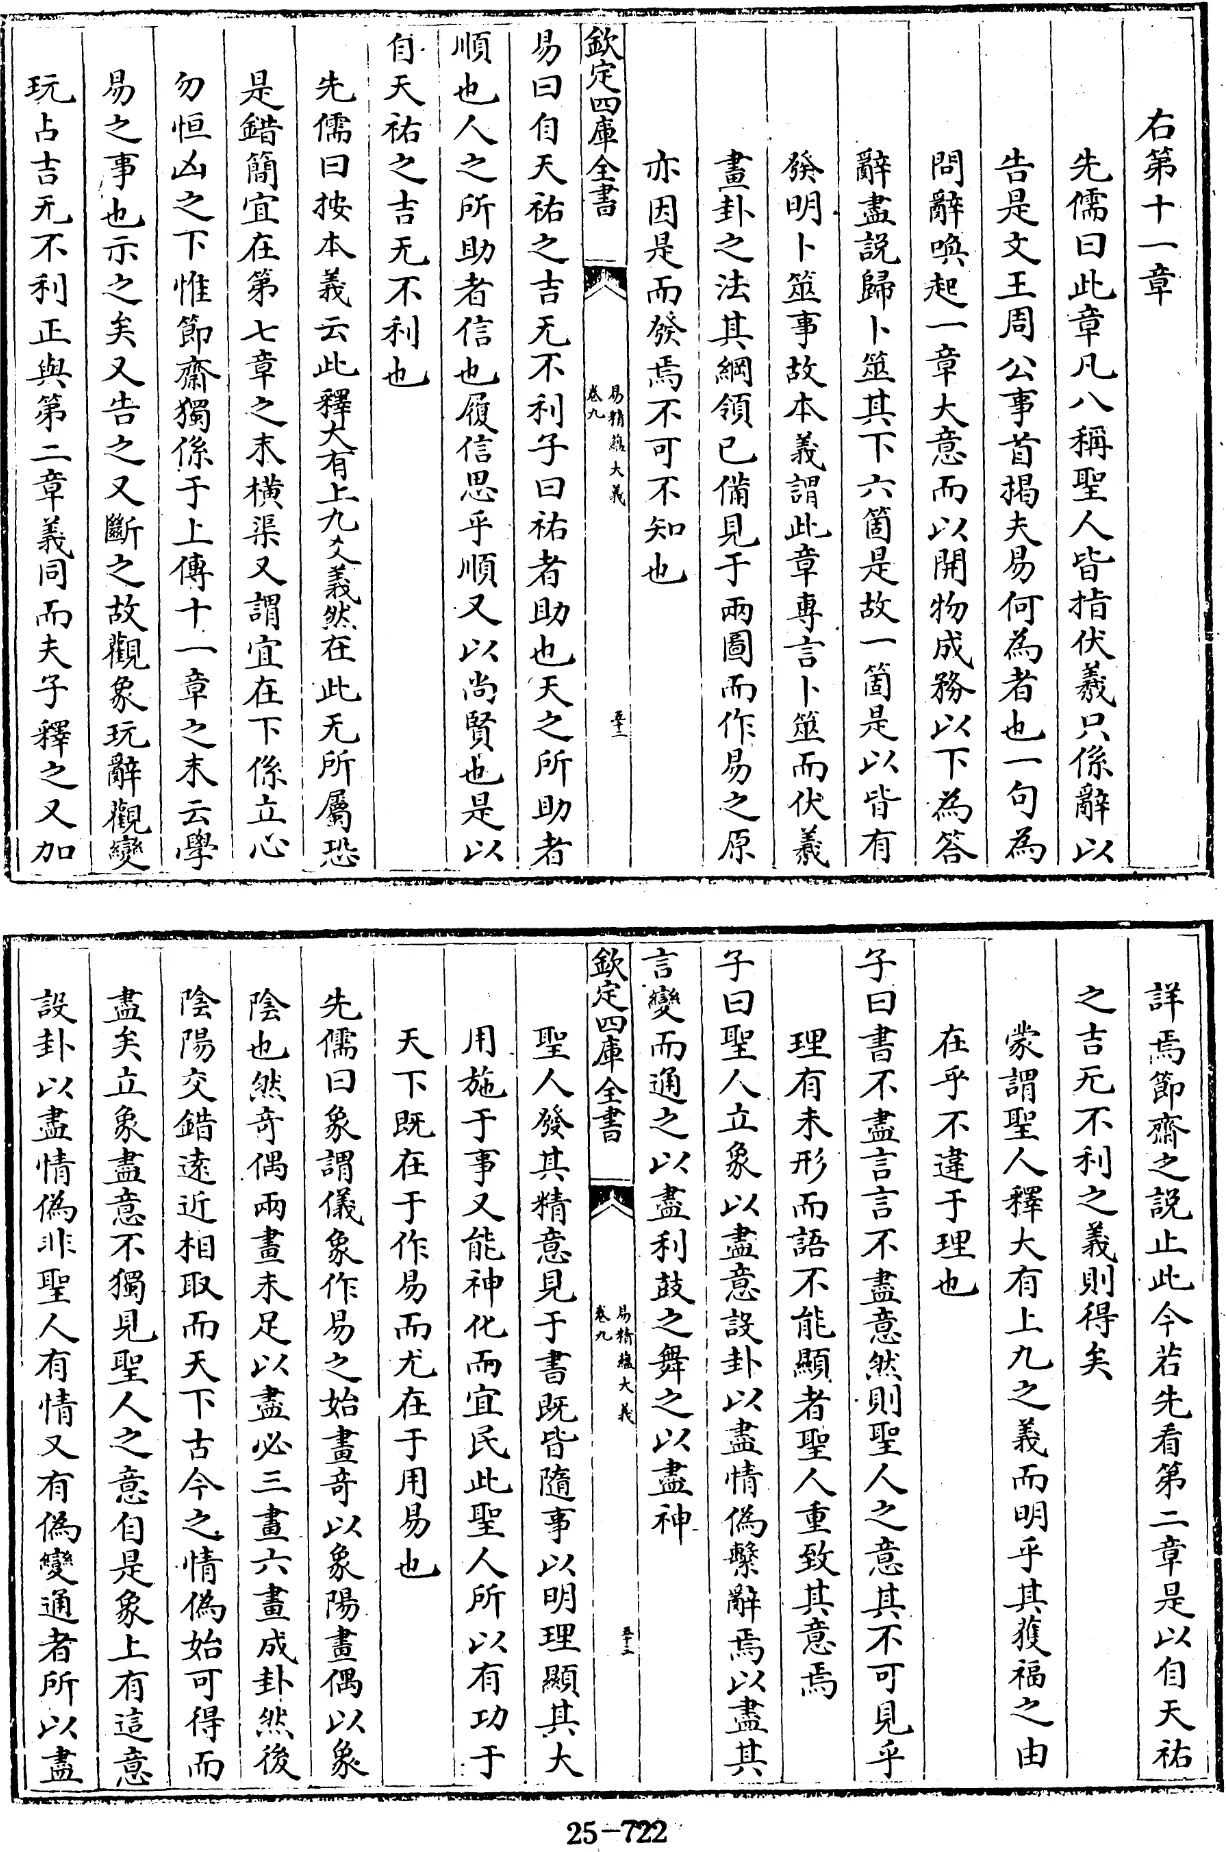 右第十一章
先儒曰此章凡八稱聖人皆指伏羲只係辭以
告是文王周公事首揭夫易何為者也一句為
問辭喚起一章大意而以開物成務以下為答
辭盡說歸卜筮其下六箇是故一箇是以皆有
發明卜筮事故本義謂此章專言卜筮而伏羲
畫卦之法其綱領已備見于兩圖而作易之原
亦因是而發焉不可不知也
欽定四庫全書
易精蘊大義
卷九
五十二
易曰自天祐之吉无不利子曰祐者助也天之所助者
順也人之所助者信也履信思乎順又以尚賢也是以
自天祐之吉无不利也
先儒曰按本義云此釋大有上九爻義然在此无所屬恐
是錯簡宜在第七章之末橫渠又謂宜在下係立心
勿恒凶之下惟節齋獨係于上傳十一章之末云學
易之事也示之矣又告之又斷之故觀象玩辭觀變
玩占吉无不利正與第二章義同而夫子釋之又加
詳焉節齋之說止此今若先看第二章是以自天祐
之吉无不利之義則得矣
蒙謂聖人釋大有上九之義而明乎其獲福之由
在乎不違于理也
子曰書不盡言言不盡意然則聖人之意其不可見乎
理有未形而語不能顯者聖人重致其意焉
子曰聖人立象以盡意設卦以盡情偽繫辭焉以盡其
言變而通之以盡利鼓之舞之以盡神
欽定四庫全書
易精蘊大義
卷九
五十三
聖人發其精意見于書既皆隨事以明理顯其大
用施于事又能神化而宜民此聖人所以有功于
天下既在于作易而尤在于用易也
先儒曰象謂儀象作易之始畫奇以象陽畫偶以象
陰也然奇偶兩畫未足以盡必三畫六畫成卦然後
陰陽交錯遠近相取而天下古今之情偽始可得而
盡矣立象盡意不獨見聖人之意自是象上有這意
設卦以盡情偽非聖人有情又有偽變通者所以盡
25-722